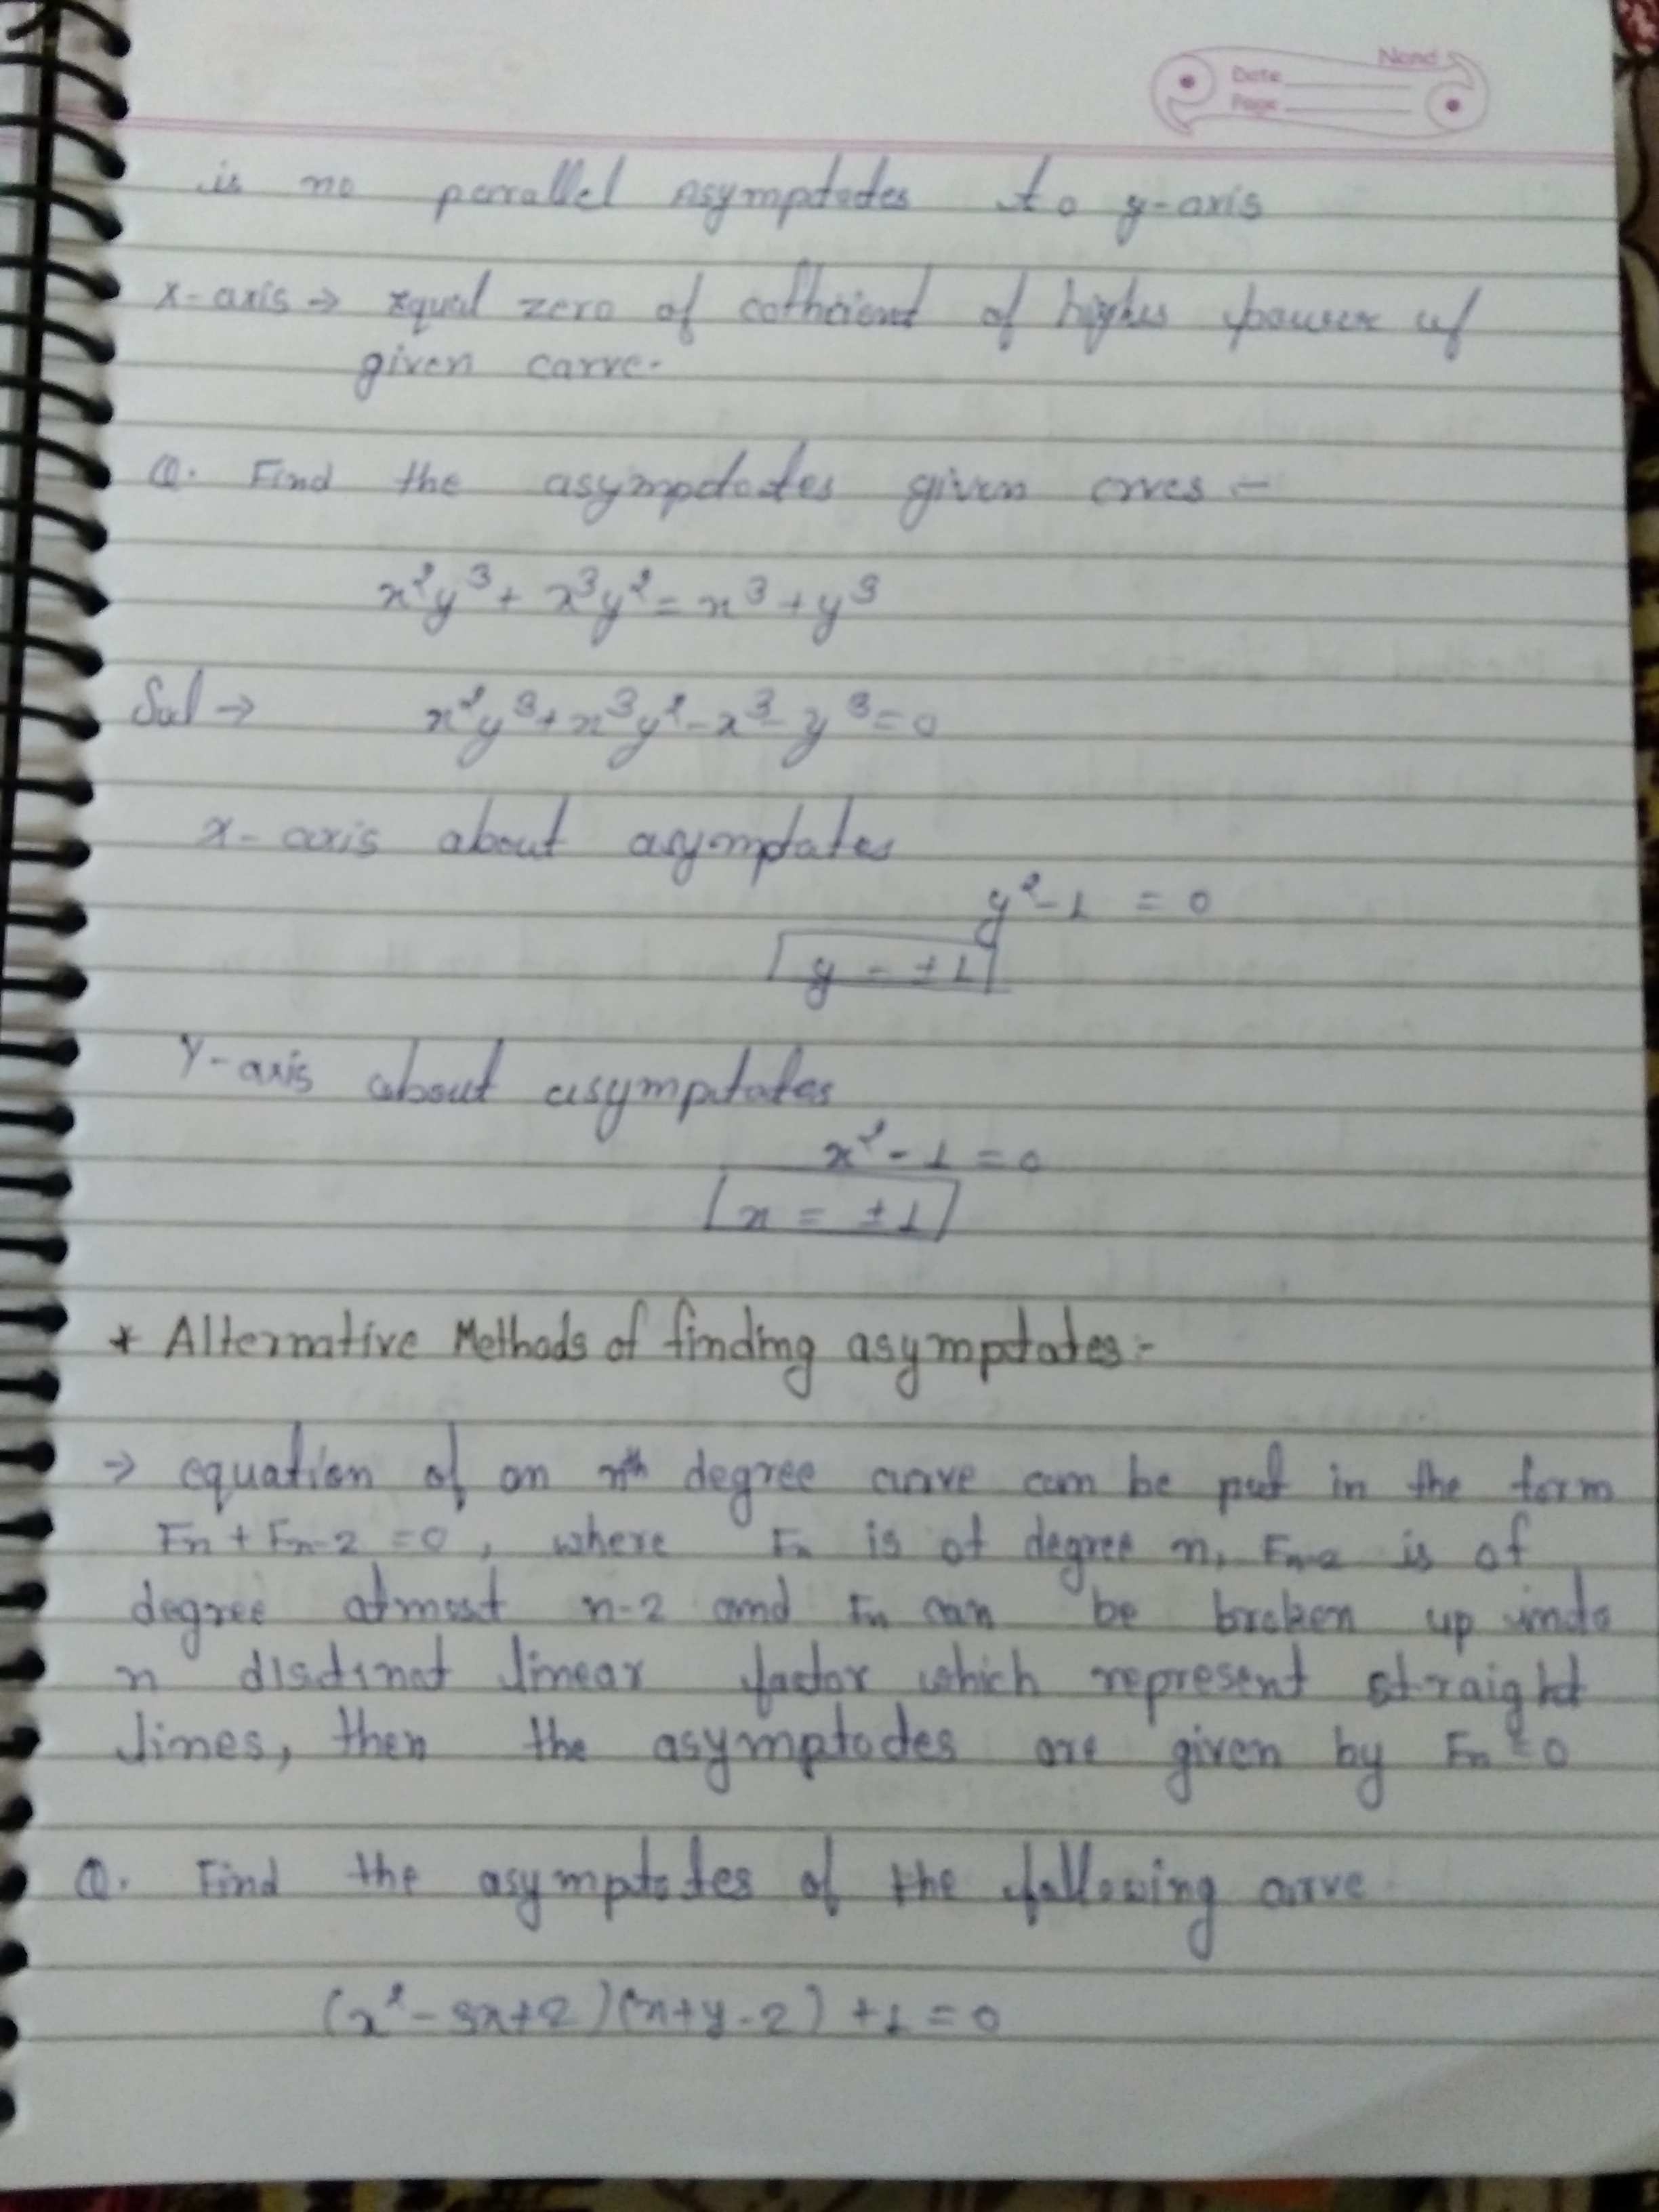 Nand
Date
Page
is no parallel asymptotes to y-axis
x-axis → equal zero of of higher power of
given carve.
Q. Find the asymptotes given crves :-
x²y³ + x³y² = x³ + y³
Sol → x²y³ + x³y² - x³ - y³ = 0
x-axis about asymptates
y² - 1 = 0
y = ±1
Y-axis about asymptates
x² - 1 = 0
x = ±1
* Alternative Methods of finding asymptotes :-
→ equation of an nth degree curve can be put in the form
Fn + Fn-2 = 0, where Fn is of degree n, Fn-2 is of
degree atmost n-2 and Fn can be broken up into
n distinct linear factor which represent straight
lines, then the asymptotes are given by Fn = 0
Q. Find the asymptotes of the following curve
(x² - 3x + 2)(x + y - 2) + 1 = 0